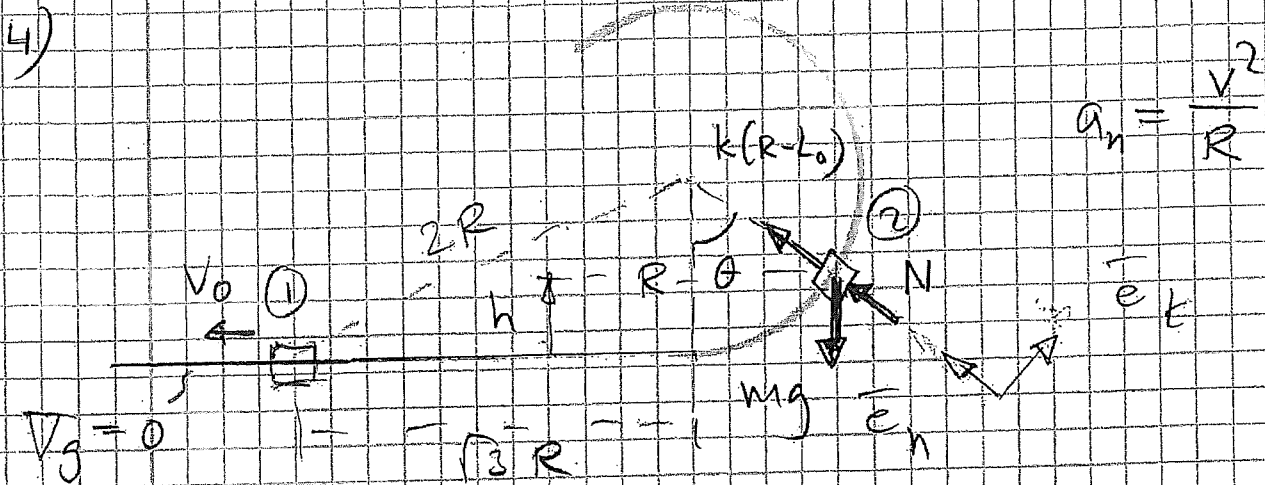 4)
a_n = v²/R
k(R-L₀)
②
2R
V₀ ①
h
R
θ
N
ē_t
mg
ē_n
V_g = 0
√3 R